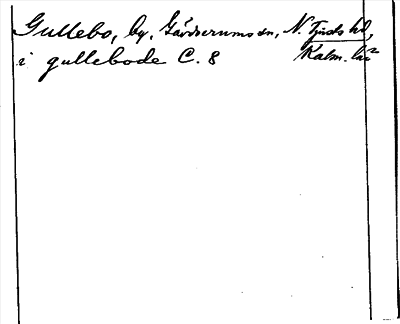 Gullebo, by, Gärdserums sn, N. Tjusts hd,
i gullebode C. 8 Kalm. län